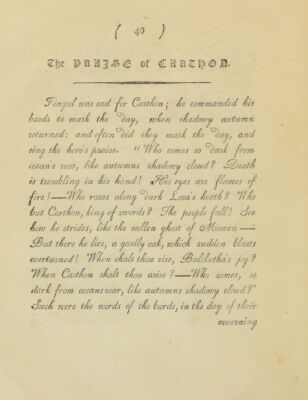 ( 40 )
The PRAISE of CARTHON.
Fingal was sad for Carthon; he commanded his
bards to mark the day, when shadowy autumn
returned: and often did they mark the day, and
sing the hero's praise. "Who comes so dark from
ocean's roar, like autumns shadowy cloud? Death
is trembling in his hand! His eyes are flames of
fire!—Who roars along dark Lora's heath? Who
but Carthon, king of swords? The people fall! See
how he strides, like the sullen ghost of Morven—
But there he lies, a goodly oak, which sudden blasts
overturned! When shalt thou rise, Balclutha's joy?
When Carthon shalt thou arise?—Who comes, so
dark from oceans roar, like autumns shadowy cloud?"
Such were the words of the bards, in the day of their
mourning